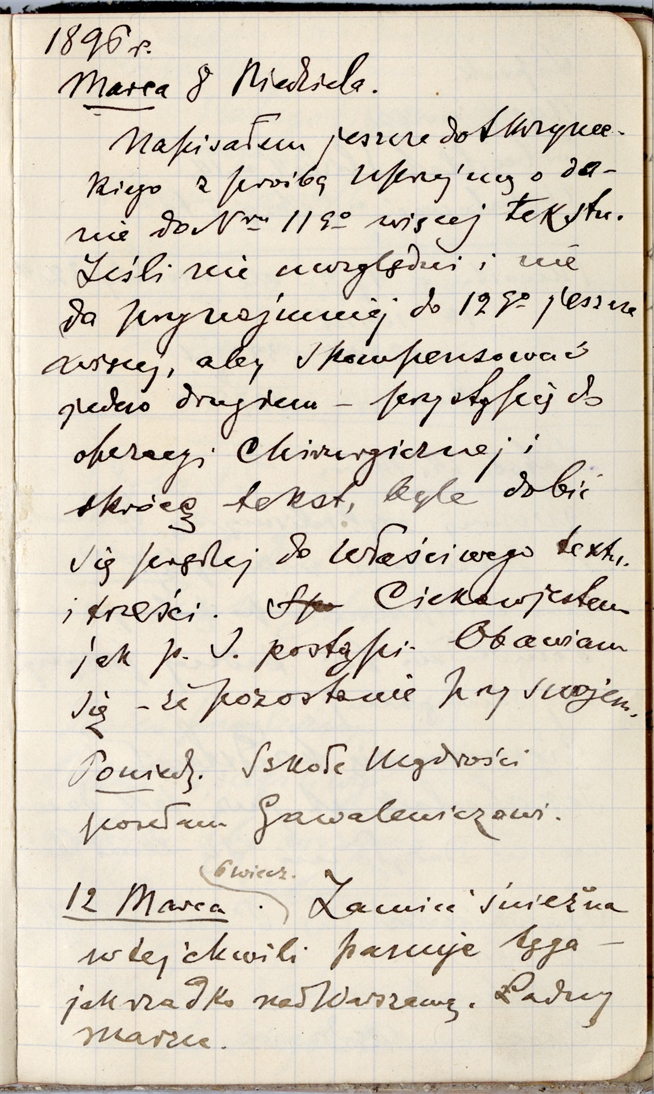 1896 r.
Marca 8 Niedziela.
Napisałem jeszcze do Skrzynec-
kiego z prośbą uprzejmą o da-
nie do Nru 11go więcej tekstu.
Jeśli nie uwzględni i nie
da przynajmniej do 12go jeszcze
więcej, aby skompensować
jedno drugiem – przystąpię do
operacyi chirurgicznej i
skrócę tekst, byle dobić
się prędzej do właściwego textu
i treści. Ciekaw jestem
jak p. S. postąpi. Obawiam
się – że pozostanie przy swojem.
Poniedz. Szkołę Mądrości
posłam Gawalewiczowi.
6 wiecz.
12 Marca. Zamieć śnieżna
w tej chwili panuje tęga –
jak rzadko nad Warszawą. Ładny
marzec.